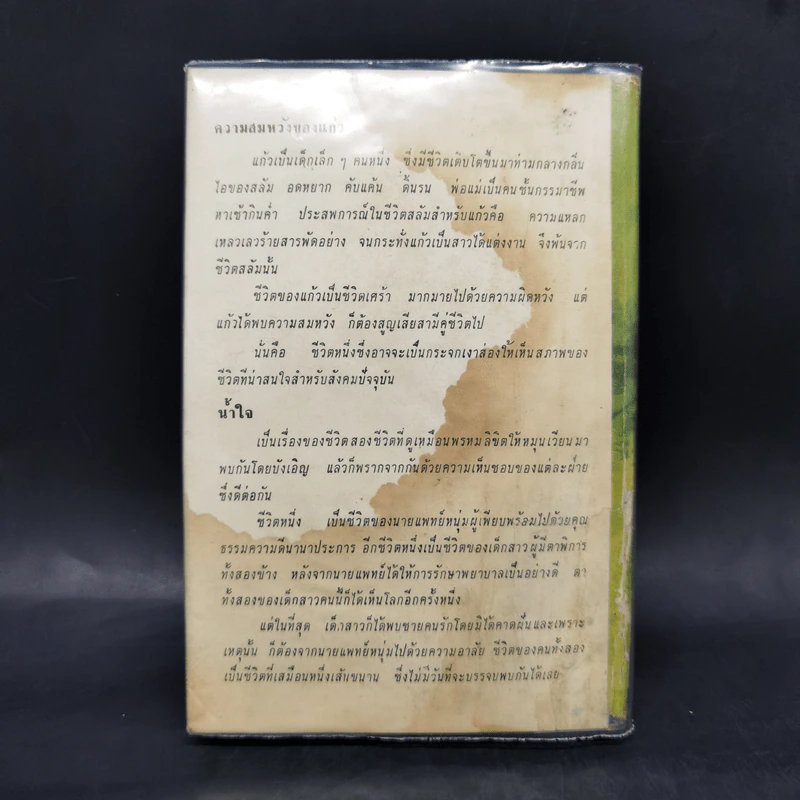 ความสมหวังของแก้ว
แก้วเป็นเด็กเล็ก ๆ คนหนึ่ง ซึ่งมีชีวิตเติบโตขึ้นมาท่ามกลางกลิ่น
ไอของสลัม อดหยาก คับแค้น ดิ้นรน พ่อแม่เป็นคนชั้นกรรมาชีพ
หาเช้ากินค่ำ ประสพการณ์ในชีวิตสลัมสำหรับแก้วคือ ความแหลก
เหลวเลวร้ายสารพัดอย่าง จนกระทั่งแก้วเป็นสาวได้แต่งงาน จึงพ้นจาก
ชีวิตสลัมนั้น
ชีวิตของแก้วเป็นชีวิตเศร้า มากมายไปด้วยความผิดหวัง แต่
แก้วได้พบความสมหวัง ก็ต้องสูญเสียสามีคู่ชีวิตไป
นั่นคือ ชีวิตหนึ่งซึ่งอาจจะเป็นกระจกเงาส่องให้เห็นสภาพของ
ชีวิตที่น่าสนใจสำหรับสังคมปัจจุบัน
น้ำใจ
เป็นเรื่องของชีวิตสองชีวิตที่ดูเหมือนพรหมลิขิตให้หมุนเวียนมา
พบกันโดยบังเอิญ แล้วก็พรากจากกันด้วยความเห็นชอบของแต่ละฝ่าย
ซึ่งดีต่อกัน
ชีวิตหนึ่ง เป็นชีวิตของนายแพทย์หนุ่มผู้เพียบพร้อมไปด้วยคุณ
ธรรมความดีนานาประการ อีกชีวิตหนึ่งเป็นชีวิตของเด็กสาวผู้มีตาพิการ
ทั้งสองข้าง หลังจากนายแพทย์ได้ให้การรักษาพยาบาลเป็นอย่างดี ตา
ทั้งสองของเด็กสาวคนนี้ก็ได้เห็นโลกอีกครั้งหนึ่ง
แต่ในที่สุด เด็กสาวก็ได้พบชายคนรักโดยมิได้คาดฝันและเพราะ
เหตุนั้น ก็ต้องจากนายแพทย์หนุ่มไปด้วยความอาลัย ชีวิตของคนทั้งสอง
เป็นชีวิตที่เสมือนหนึ่งเส้นขนาน ซึ่งไม่มีวันที่จะบรรจบพบกันได้เลย